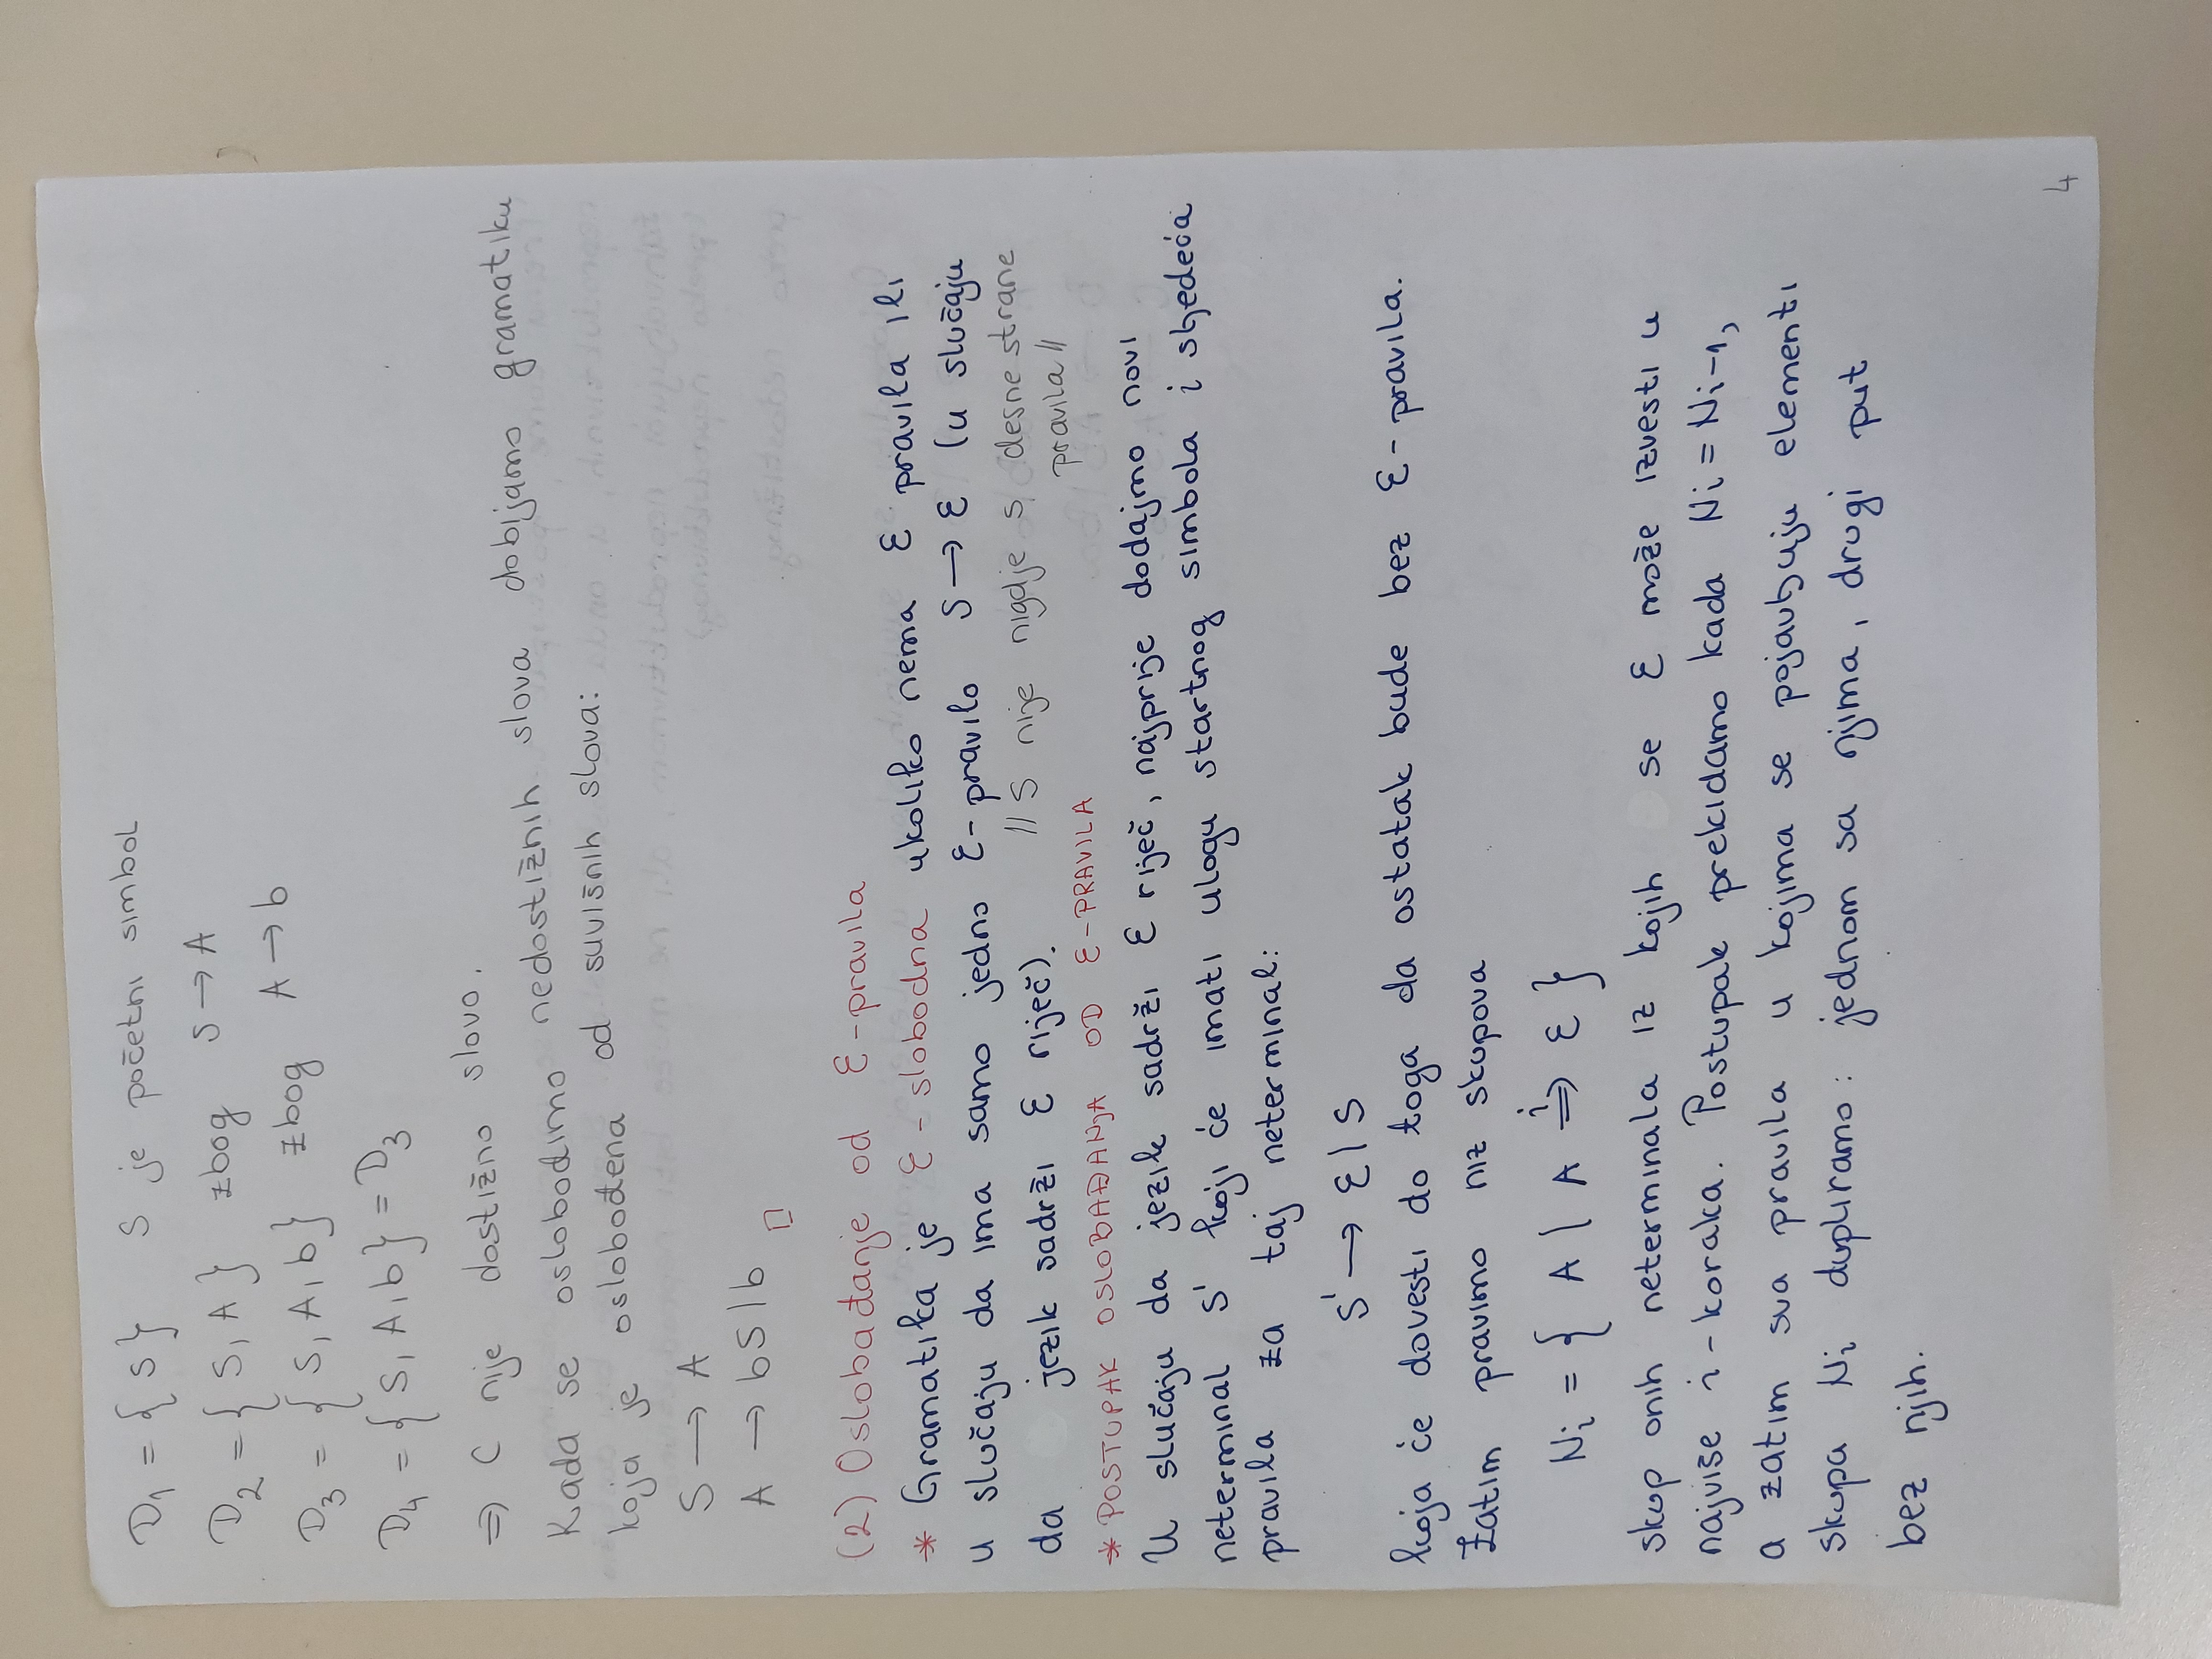 D₁ = { S } S je početni simbol
D₂ = { S, A } zbog S → A
D₃ = { S, A, b } zbog A → b
D₄ = { S, A, b } = D₃
⇒ C nije dostižno slovo.
Kada se oslobodimo nedostižnih slova dobijamo gramatiku
koja je oslobođena od suvišnih slova:
S → A
A → bS | b □
(2) Oslobađanje od ε-pravila
* Gramatika je ε-slobodna ukoliko nema ε pravila ili
u slučaju da ima samo jedno ε-pravilo S → ε (u slučaju
da jezik sadrži ε riječ). // S nije nigdje s desne strane
pravila //
* POSTUPAK OSLOBAĐANjA OD ε-PRAVILA
U slučaju da jezik sadrži ε riječ, najprije dodajmo novi
neterminal S' koji će imati ulogu startnog simbola i sljedeća
pravila za taj neterminal:
S' → ε | S
koja će dovesti do toga da ostatak bude bez ε-pravila.
Zatim pravimo niz skupova
Nᵢ = { A | A ⇒ⁱ ε }
skup onih neterminala iz kojih se ε može izvesti u
najviše i-koraka. Postupak prekidamo kada Nᵢ = Nᵢ₋₁,
a zatim sva pravila u kojima se pojavljuju elementi
skupa Nᵢ dupliramo: jednom sa njima, drugi put
bez njih.
4